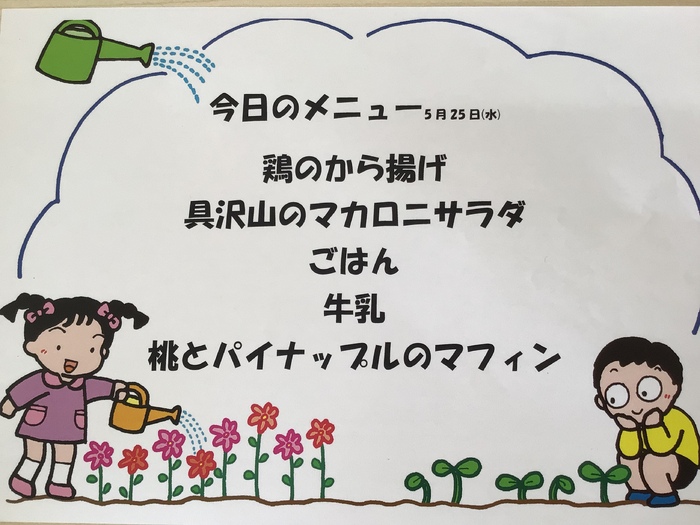 今日のメニュー 5月25日(水)
鶏のから揚げ
具沢山のマカロニサラダ
ごはん
牛乳
桃とパイナップルのマフィン